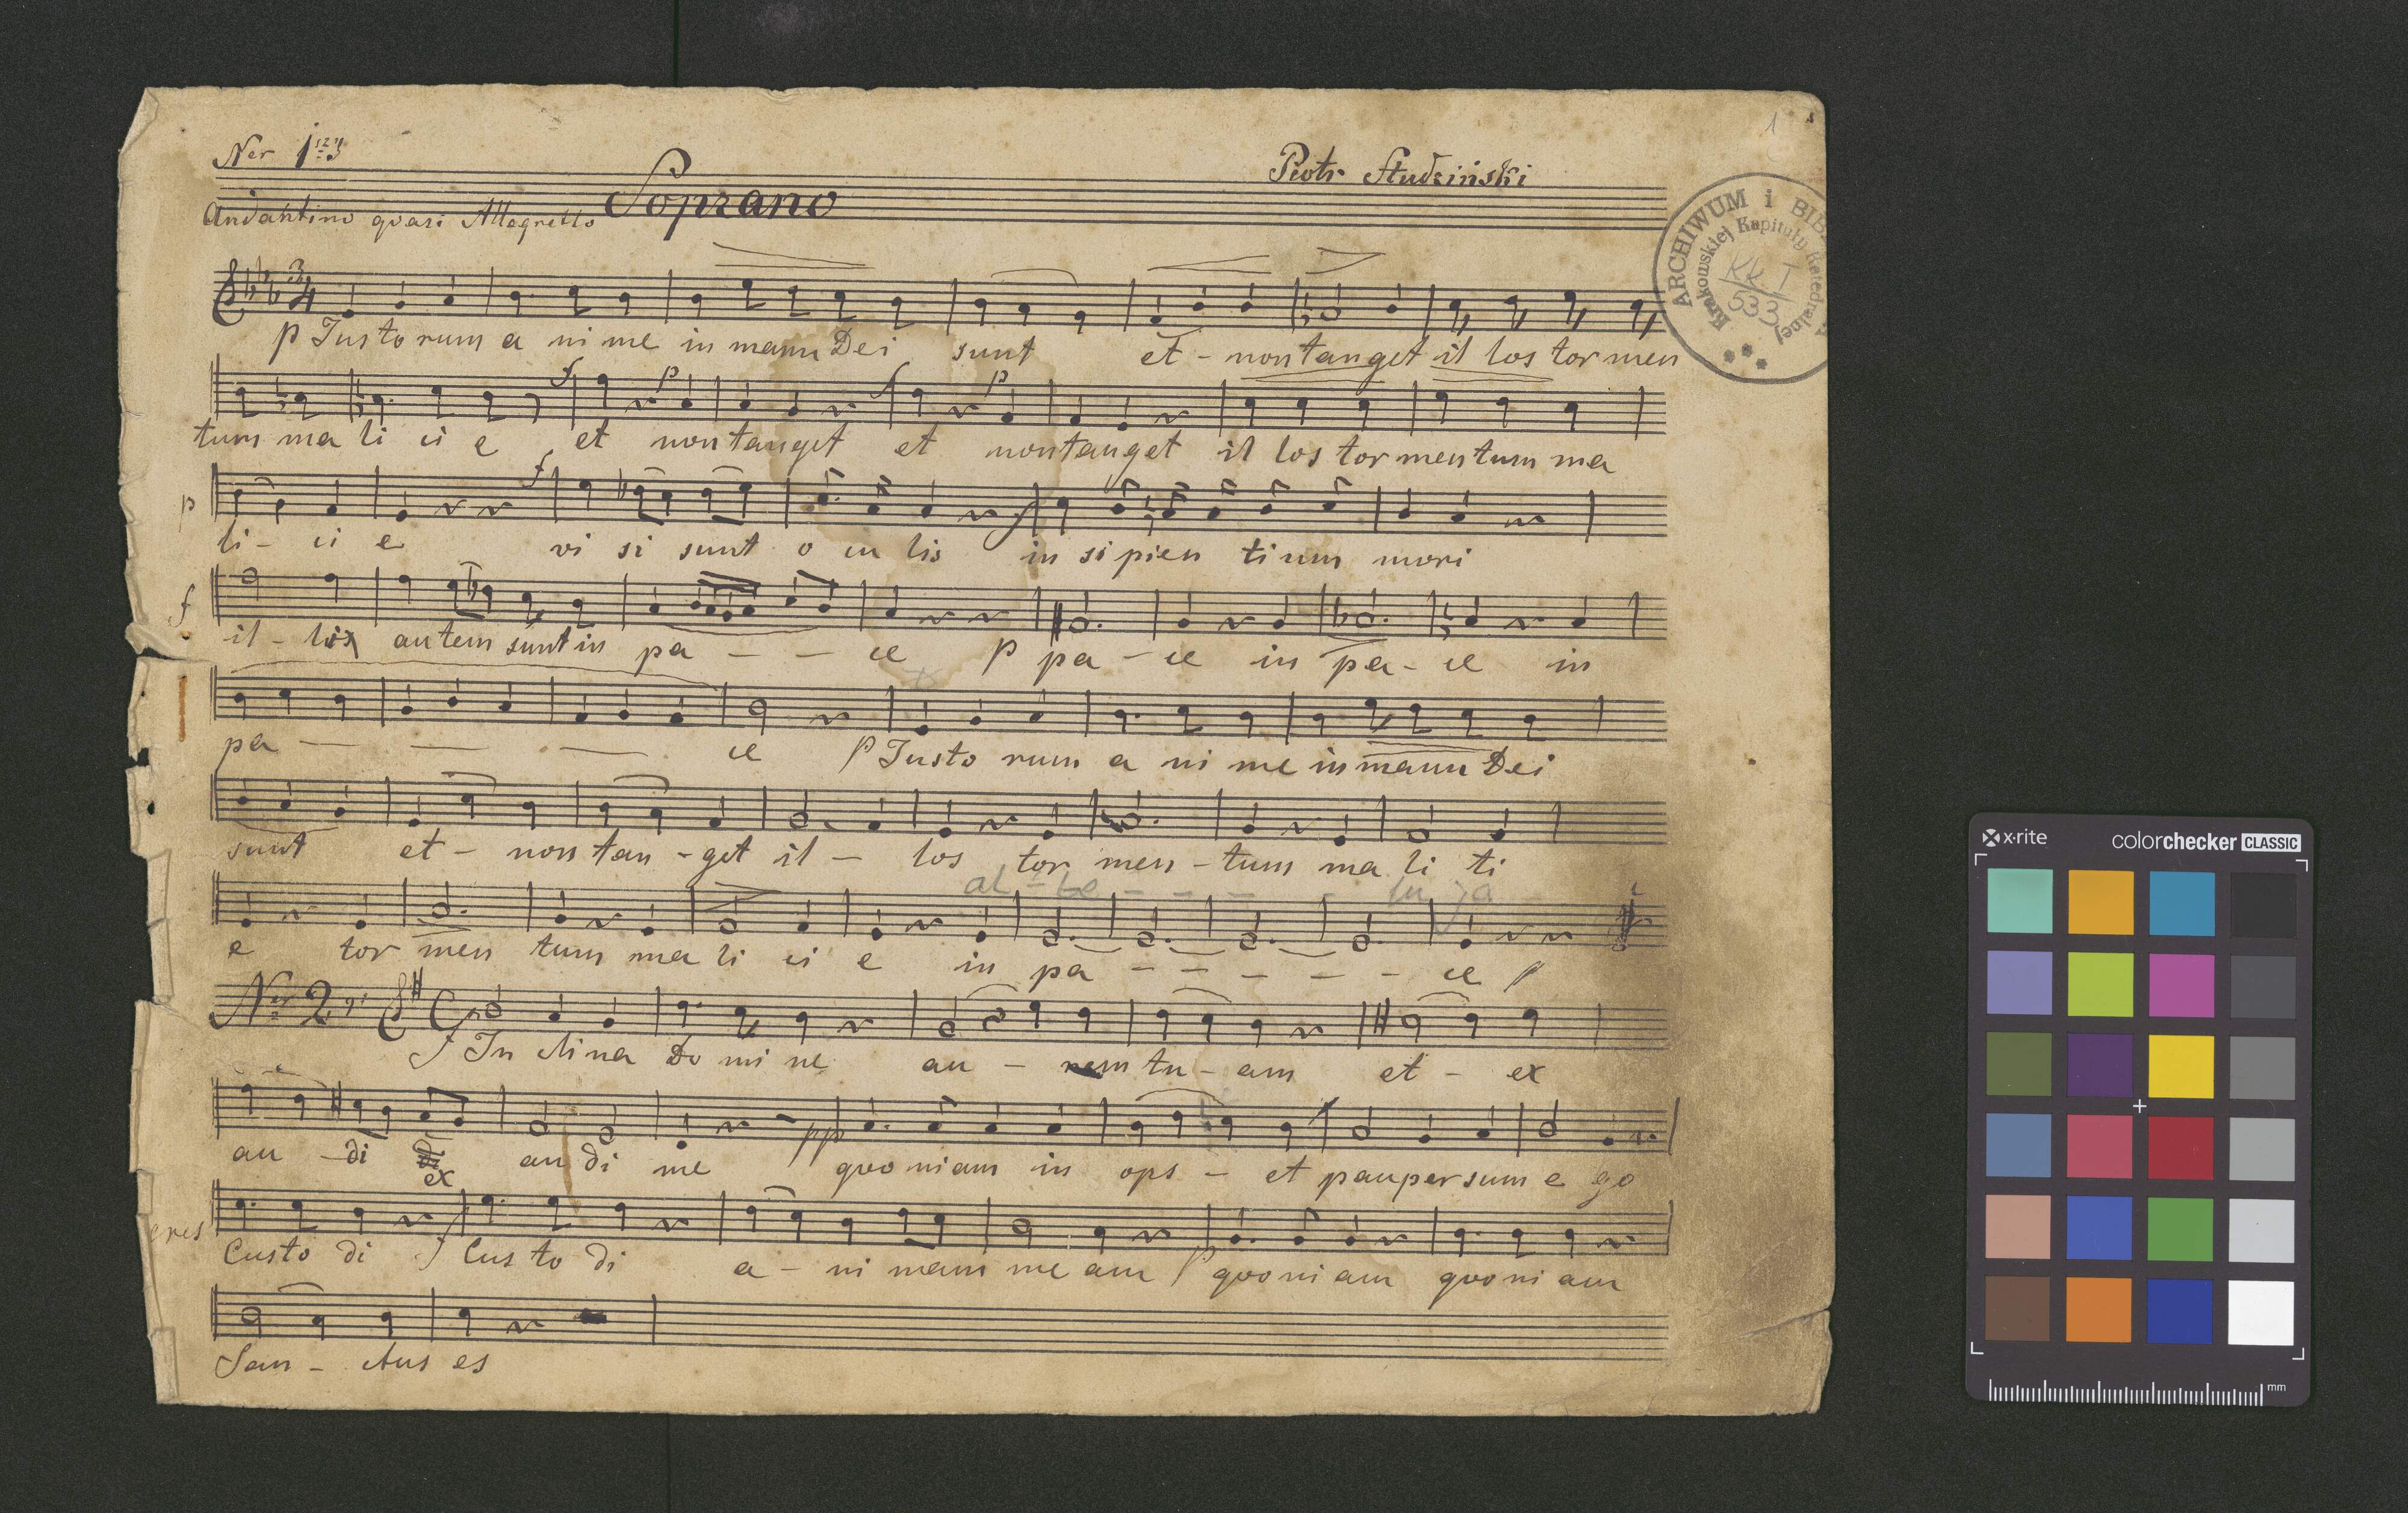 1
Ner 1szy
Piotr Studziński
Soprano
Andantino quasi Allegretto
ARCHIWUM i BIB
Krakowskiej Kapituły Katedralnej
KK I
533
p Justo rum a ni me in manu Dei sunt et - non tanget il los tor men
f p f p
tum ma li ci e et non tanget et non tanget il los tor men tum ma
p f
li - ci e vi si sunt o cu lis in si pien ti um mori
f
il - lis autem sunt in pa - - ce p pa - ce in pa - ce in
pa — — — ce p Justo rum a ni me in manu Dei
sunt et - non tan - get il - los tor men - tum ma li ti
al - le - - - - lu ja
e tor men tum ma li ci e in pa - - - - - ce
Ner 2gi
f In clina Do mi ne au - rem tu - am et - ex
pp
au - di ex au di me quo niam in ops - et pauper sum e go
cres
Custo di f Cus to di a - ni mam me am p quo ni am quo ni am
San - ctus es
x-rite
colorchecker CLASSIC
mm